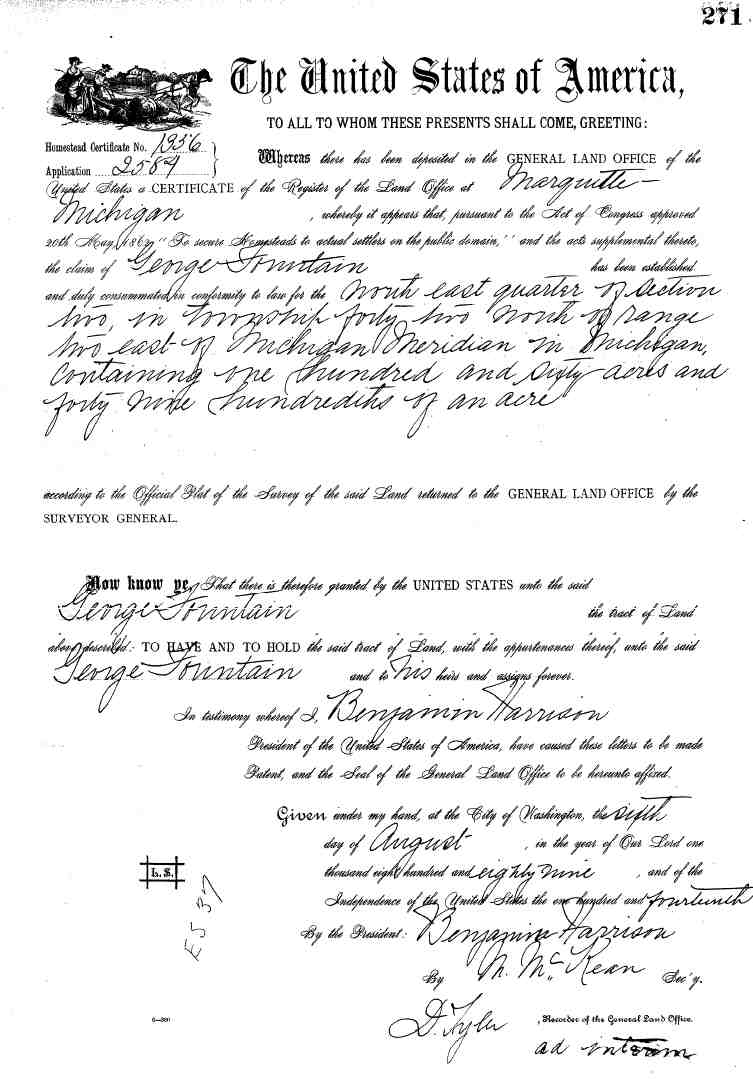 271
The United States of America,
TO ALL TO WHOM THESE PRESENTS SHALL COME, GREETING:
Homestead Certificate No. 1336
Application 2584
Whereas there has been deposited in the GENERAL LAND OFFICE of the
United States a CERTIFICATE of the Register of the Land Office at Marquitte
Michigan, whereby it appears that, pursuant to the Act of Congress approved
20th May, 1862, "To secure Homesteads to actual settlers on the public domain," and the acts supplemental thereto,
the claim of George Fountain has been established
and duly consummated, in conformity to law for the North east quarter of Section
two, in township forty two North of range
two east of Michigan Meridian in Michigan,
Containing one hundred and sixty acres and
forty nine hundredths of an acre
according to the Official Plat of the Survey of the said Land returned to the GENERAL LAND OFFICE by the
SURVEYOR GENERAL.
Now know ye, That there is therefore granted by the UNITED STATES unto the said
George Fountain the tract of Land
above described: TO HAVE AND TO HOLD the said tract of Land, with the appurtenances thereof, unto the said
George Fountain and to his heirs and assigns forever.
In testimony whereof I, Benjamin Harrison
President of the United States of America, have caused these letters to be made
Patent, and the Seal of the General Land Office to be hereunto affixed.
Given under my hand, at the City of Washington, the sixth
day of August, in the year of Our Lord one
thousand eight hundred and eighty nine, and of the
Independence of the United States the one hundred and fourteenth
L. S.
By the President: Benjamin Harrison
By M. McKean Sec'y.
D. Tyler, Recorder of the General Land Office.
ad interim